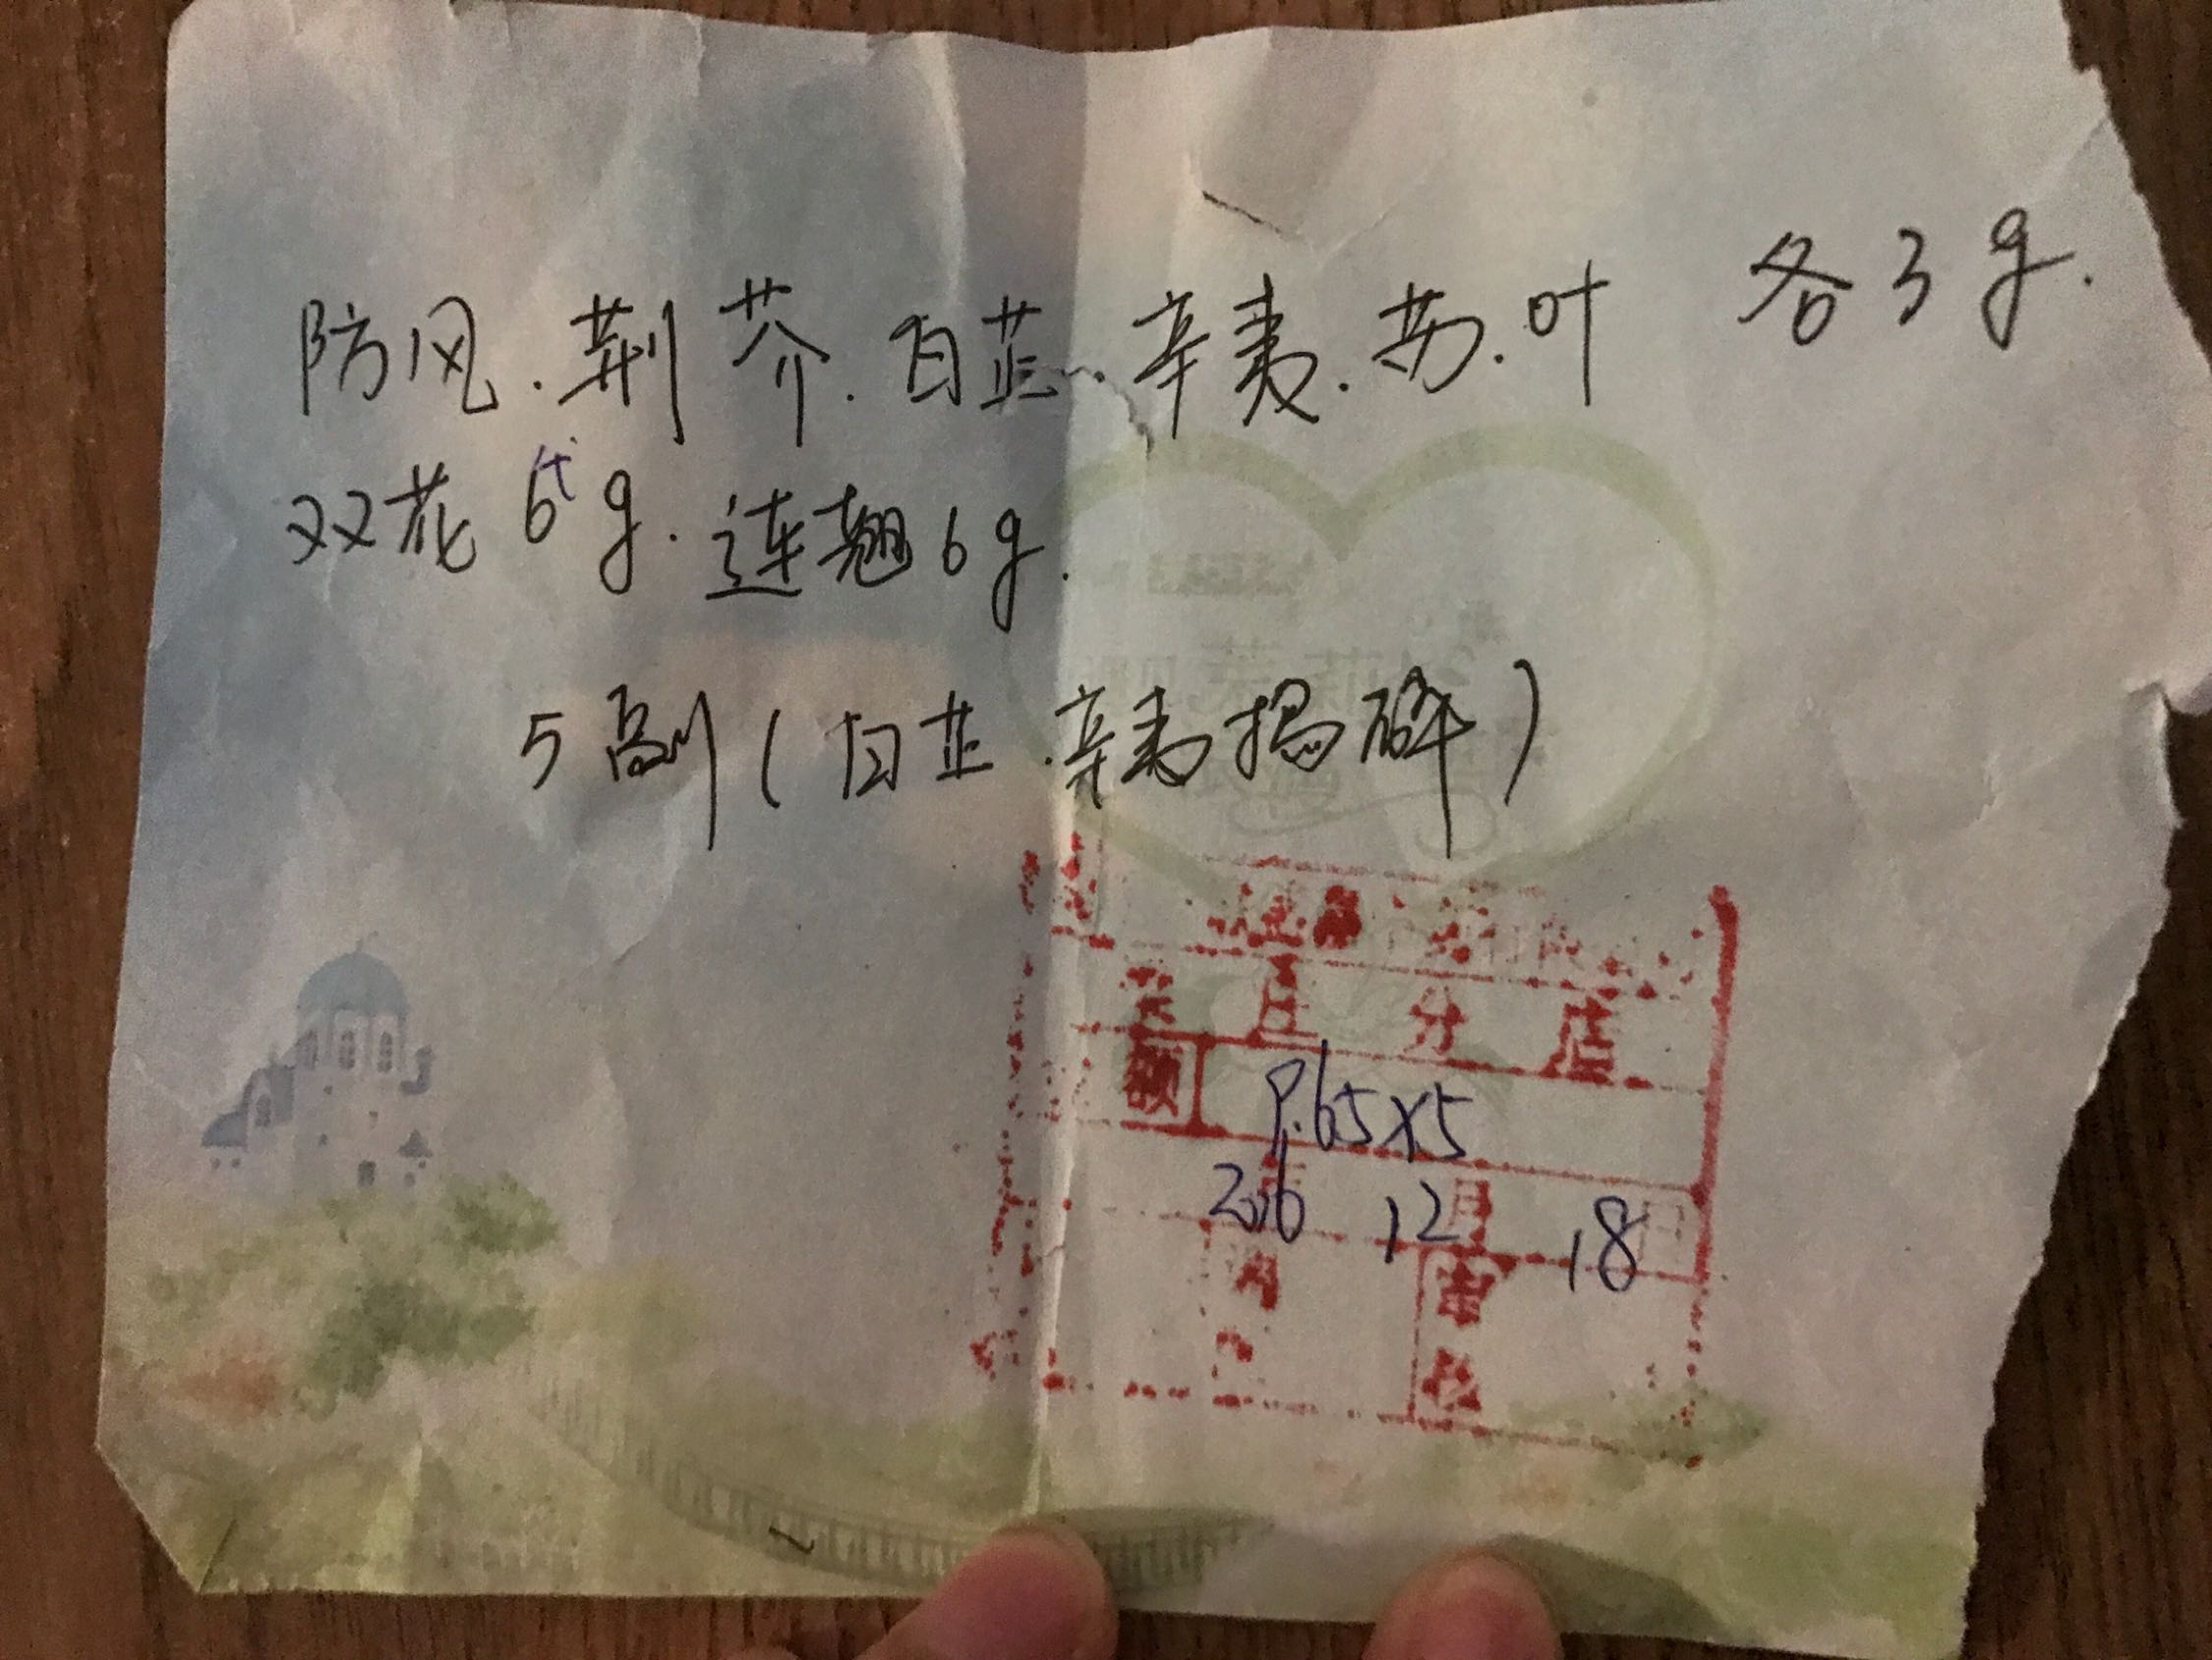 防风.荆芥.白芷.辛夷.苏.叶 各3g.
双花6g.连翘6g.
5副(白芷.辛夷捣碎)
庄分店
额 9.65×5
2016年12月18日
审核